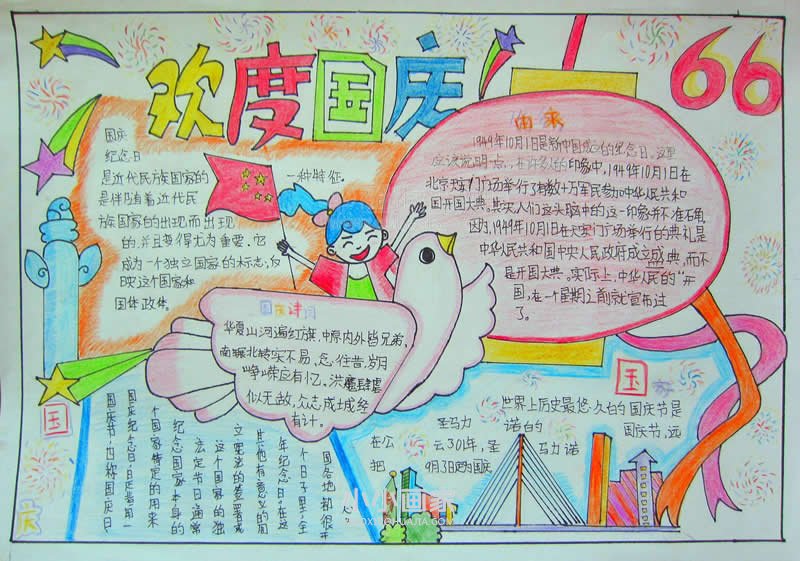 欢度国庆
66
国庆
纪念日
是近代民族国家的
一种特征,
是伴随着近代民
族国家的出现而出现
的,并且变得尤为重要。它
成为一个独立国家的标志,反
映这个国家和
国体政体。
由来
1949年10月1日是新中国成立的纪念日。这里
应该说明一点,在许多人的印象中,1949年10月1日在
北京天安门广场举行了有数十万军民参加中华人民共和
国开国大典。其实,人们这头脑中的这一印象并不准确。
因为,1949年10月1日在天安门广场举行的典礼是
中华人民共和国中央人民政府成立盛典,而不
是开国大典。实际上,中华人民的“开
国,在一个星期之前就宣布过
了。
国庆诗词
华夏山河遍红旗,中原内外皆兄弟,
南辗北转实不易,忘往昔,岁月
峥嵘应有忆,洪魔肆虐
似无敌,众志成城终
有计。
国
世界上历史最悠久的国庆节是
圣马力诺的国庆节,远
在公元301年,圣马力诺
把9月3日定为国庆
国
庆
国庆纪念日是指用一
个国家特定的用来
纪念国家本身的
法定节日通常
这个国家的独
立宪法的签署或
其他有意义的周
年纪念日
国庆节,也称国庆日
国各地都很开